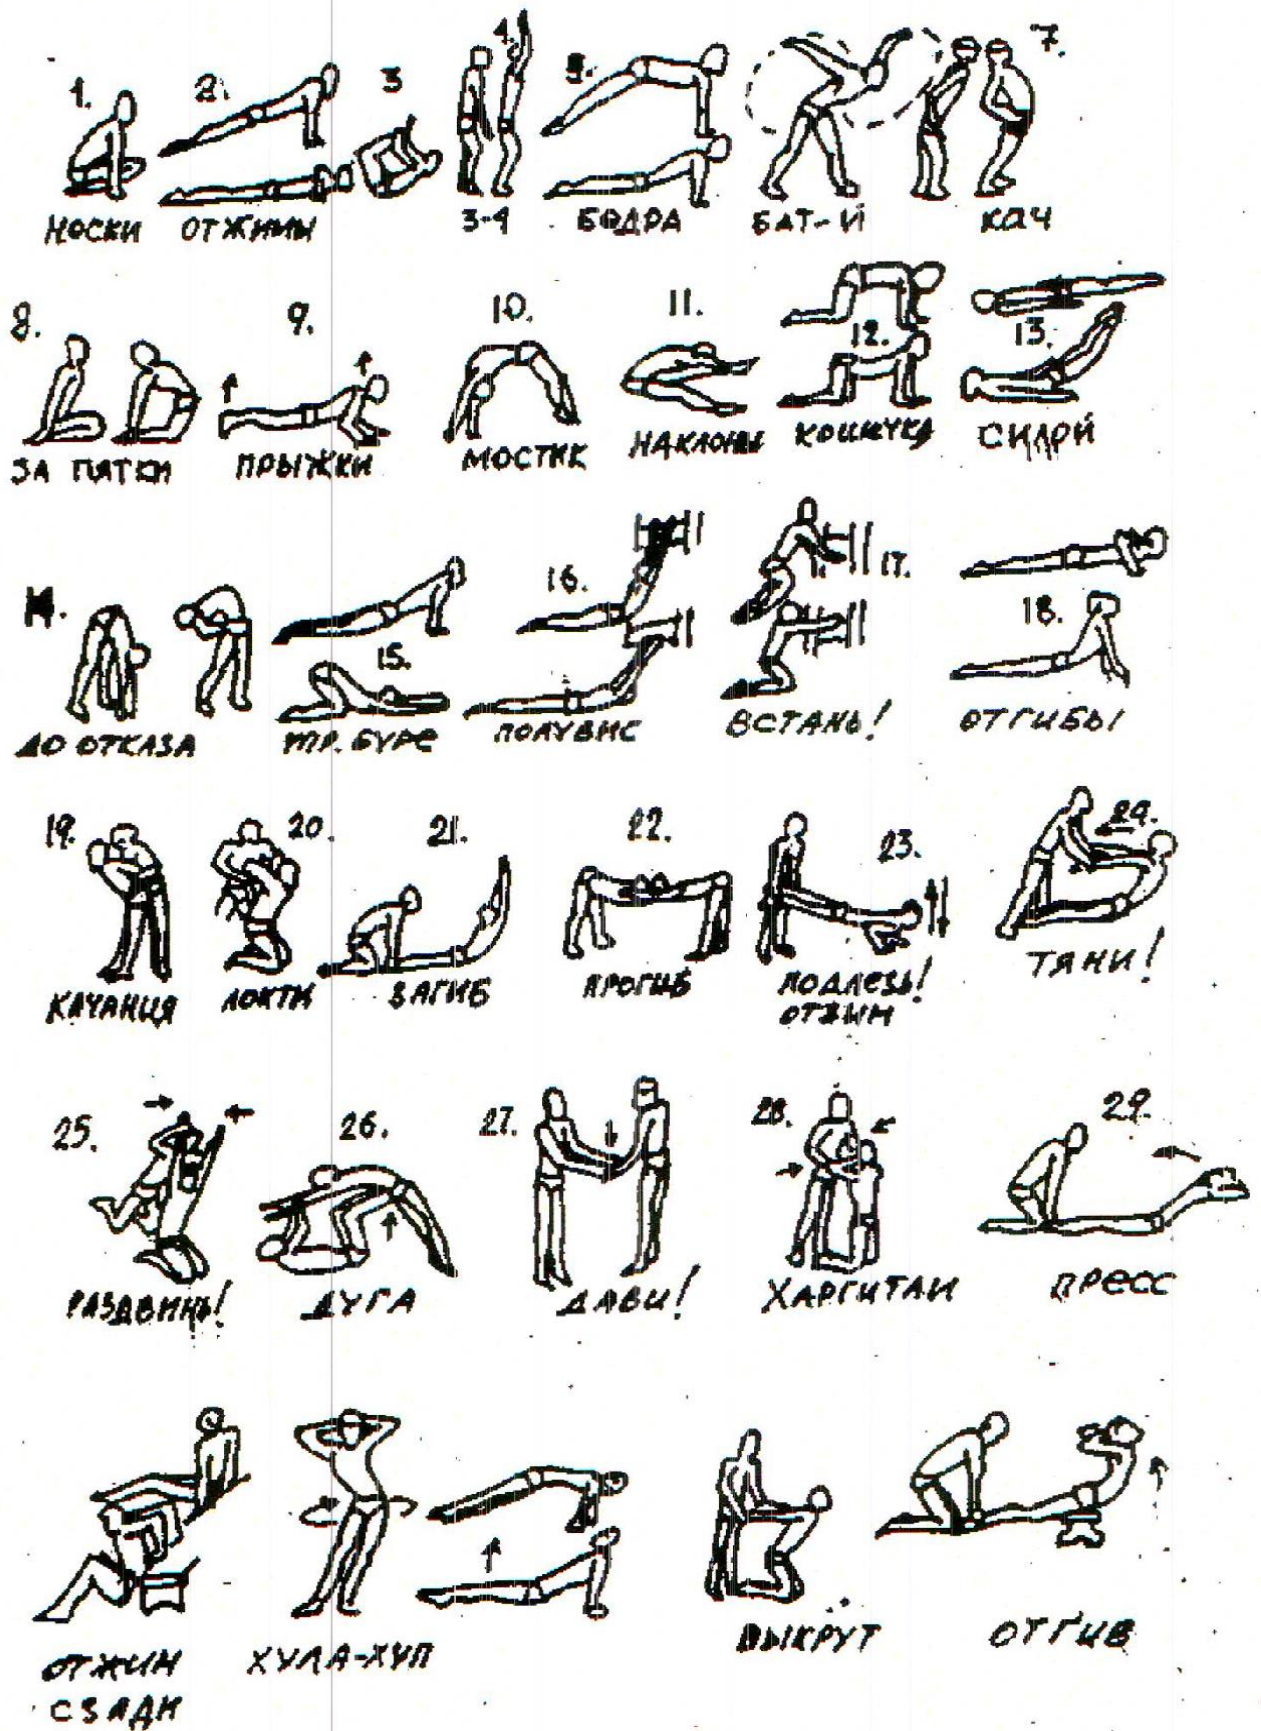 1. 2. 3 4. 5. 7.
НОСКИ ОТЖИМЫ 3-4 БЕДРА БАТ-Й КАЧ
8. 9. 10. 11. 12. 13.
ЗА ПЯТКИ ПРЫЖКИ МОСТИК НАКЛОНЫ КОШЕЧКА
14. 15. 16. 17. 18.
ДО ОТКАЗА ПОЛУВИС ВСТАНЬ! ОТГИБЫ
19. 20. 21. 22. 23. 24.
КАЧАНИЯ ЛОКТИ ЗАГИБ ПРОГИБ ПОДЛЕЗЬ! ТЯНИ!
ОТЖИМ
25. 26. 27. 28. 29.
РАЗДВИНЬ! ДУГА ДАВИ! ХАРГИТАИ ПРЕСС
ОТЖИМ ХУЛА-ХУП ВЫКРУТ ОТГИБ
СЗАДИ